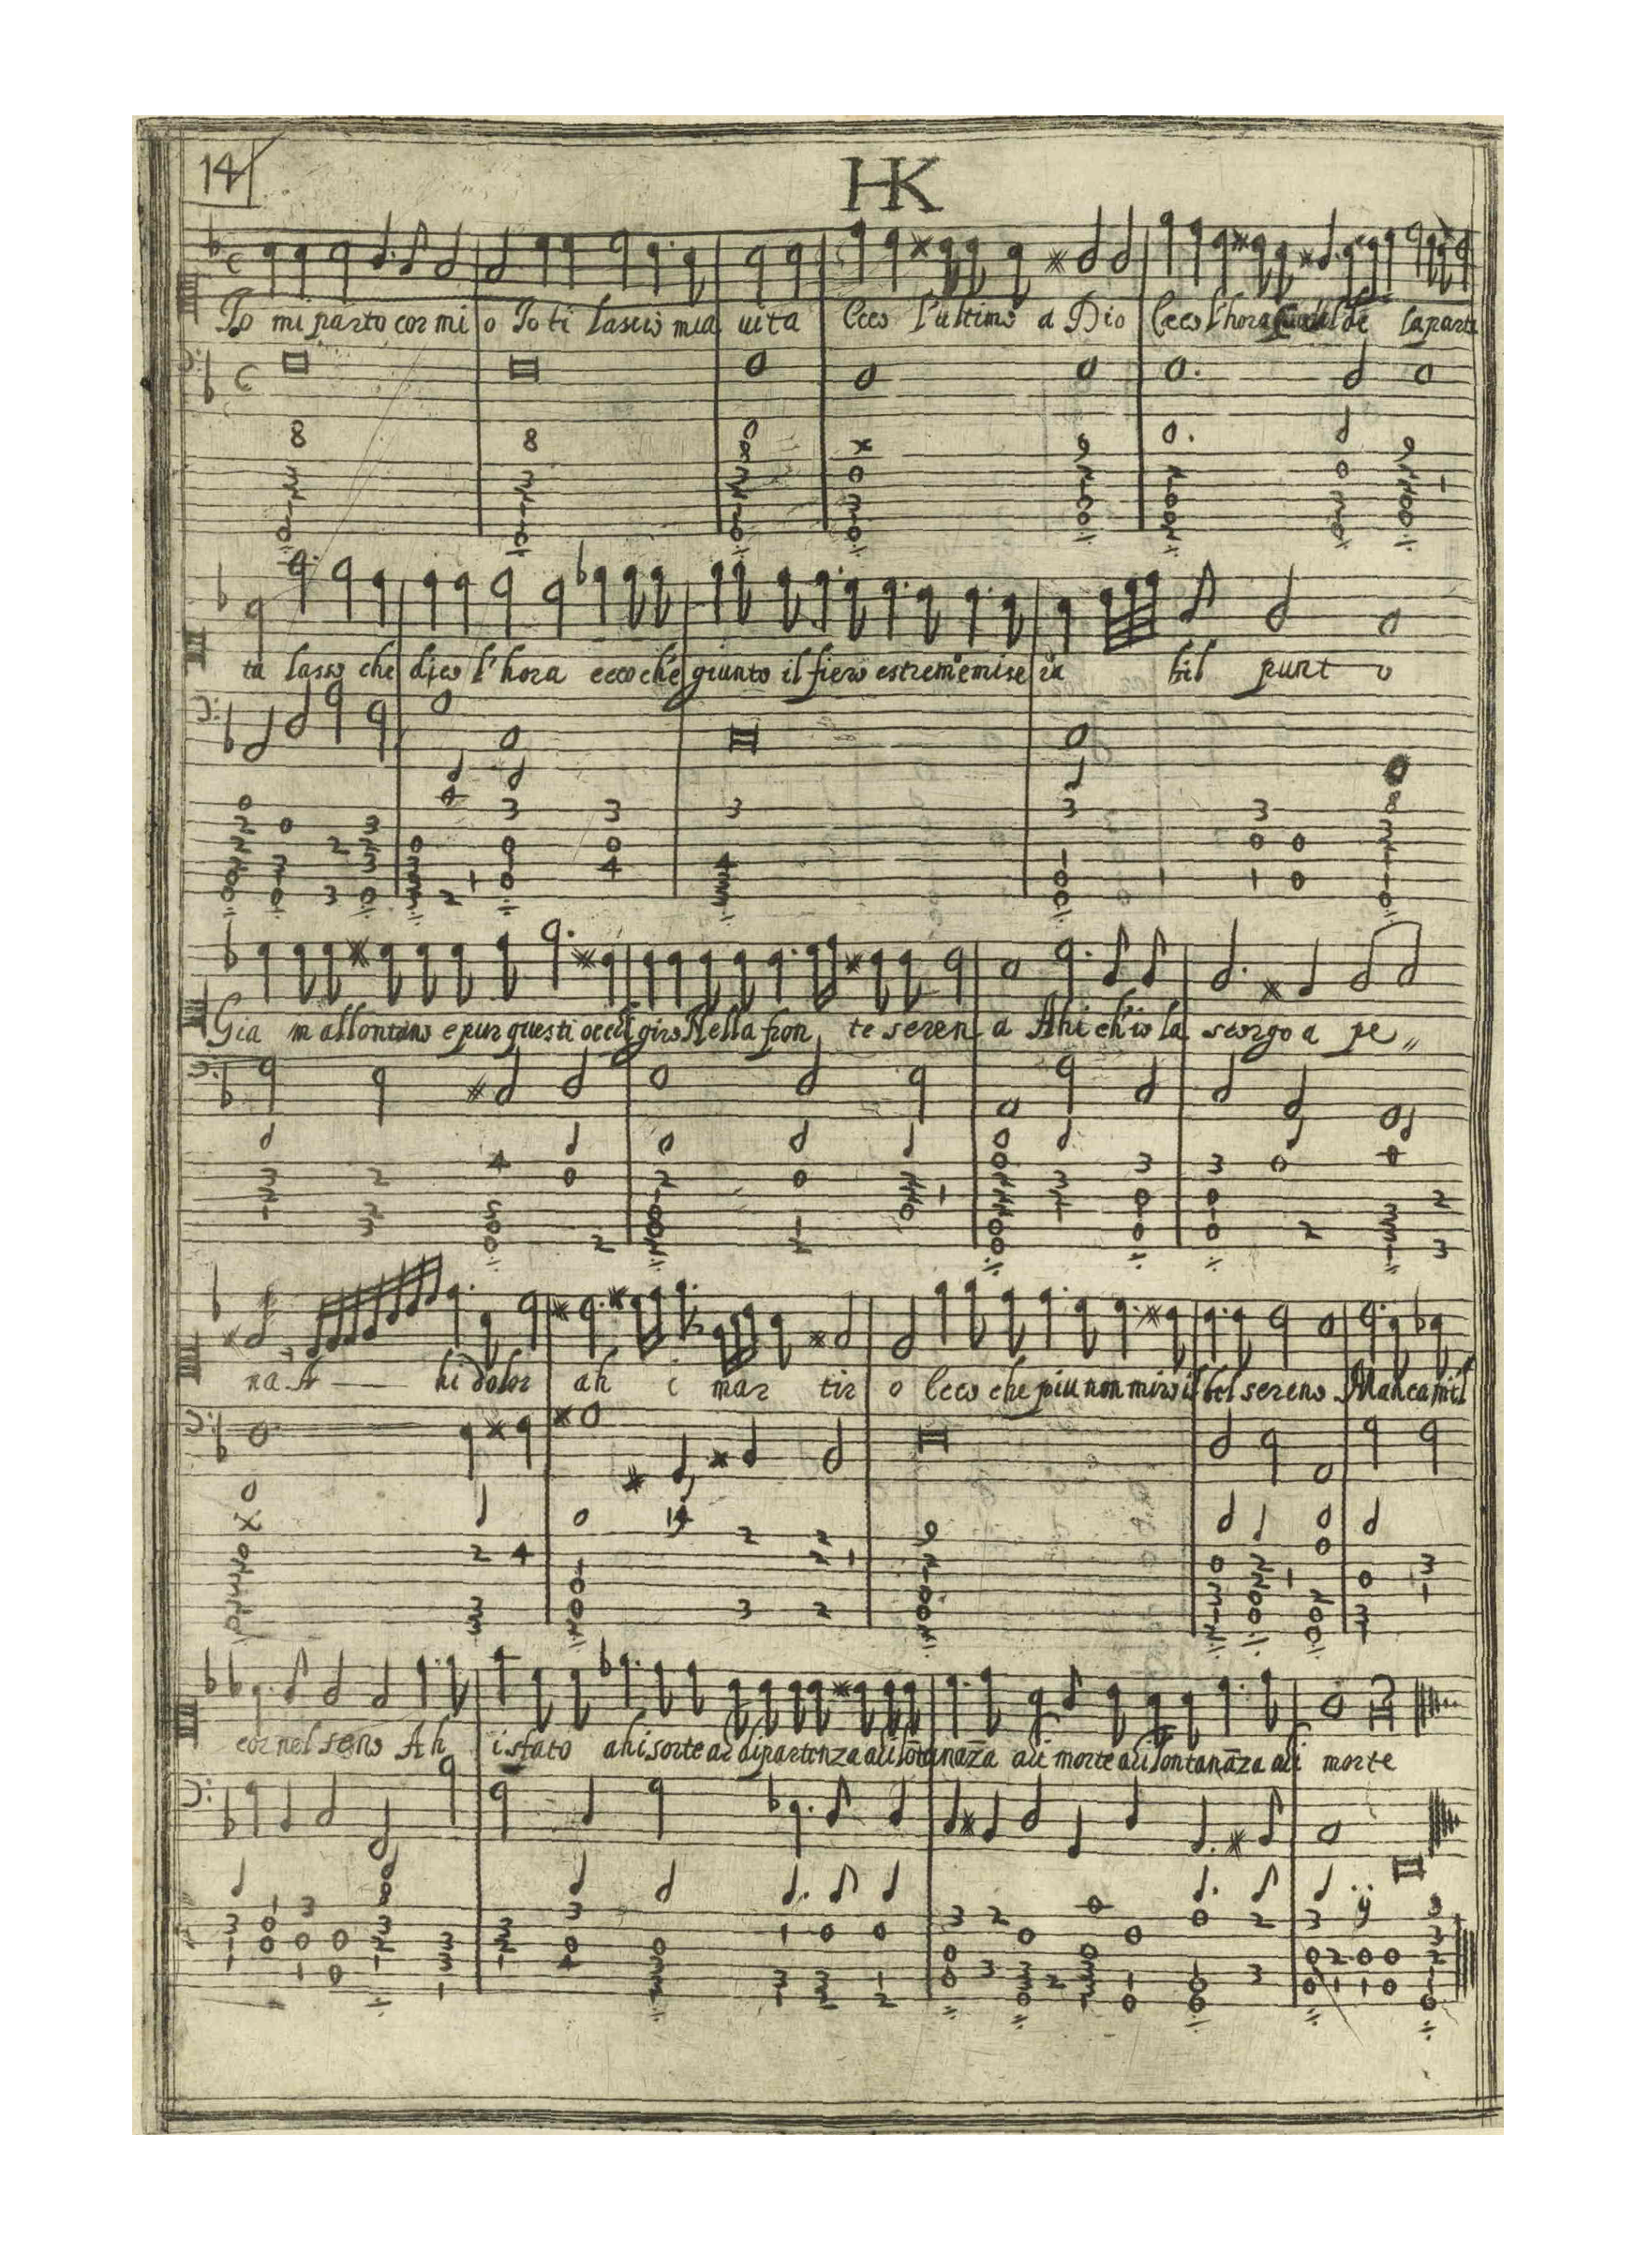 14
HK
Io mi parto cor mi o Io ti lascio mia uita Ecco l'ultimo a Dio Ecco l'hora de la parti
ta lasso che dico l'hora ecco ch'e giunto il fiero estrem'e mise ra bil punt o
Gia m allontano e pur questi occhi giro Nella fron te seren a Ahi ch'io la scorgo a pe„
na A hi dolor ah i mar tir o Ecco che piu non miro il bel sereno Manca mi'l
cor nel seno Ah i stato ahi sorte ai dipartenza ahi lōtanāza ahi morte ahi lontanāza ahi morte